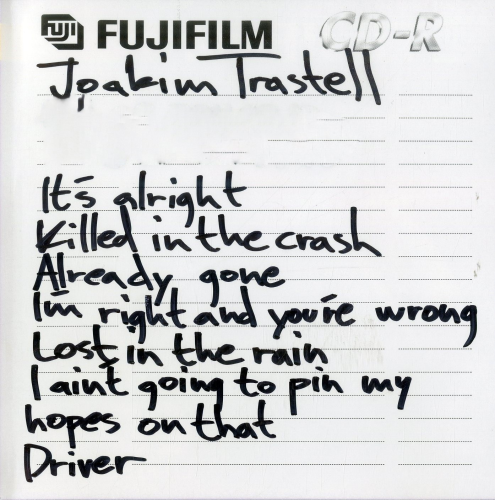 FUJI FUJIFILM CD-R
Joakim Trastell
It's alright
Killed in the crash
Already gone
I'm right and you're wrong
Lost in the rain
I aint going to pin my
hopes on that
Driver